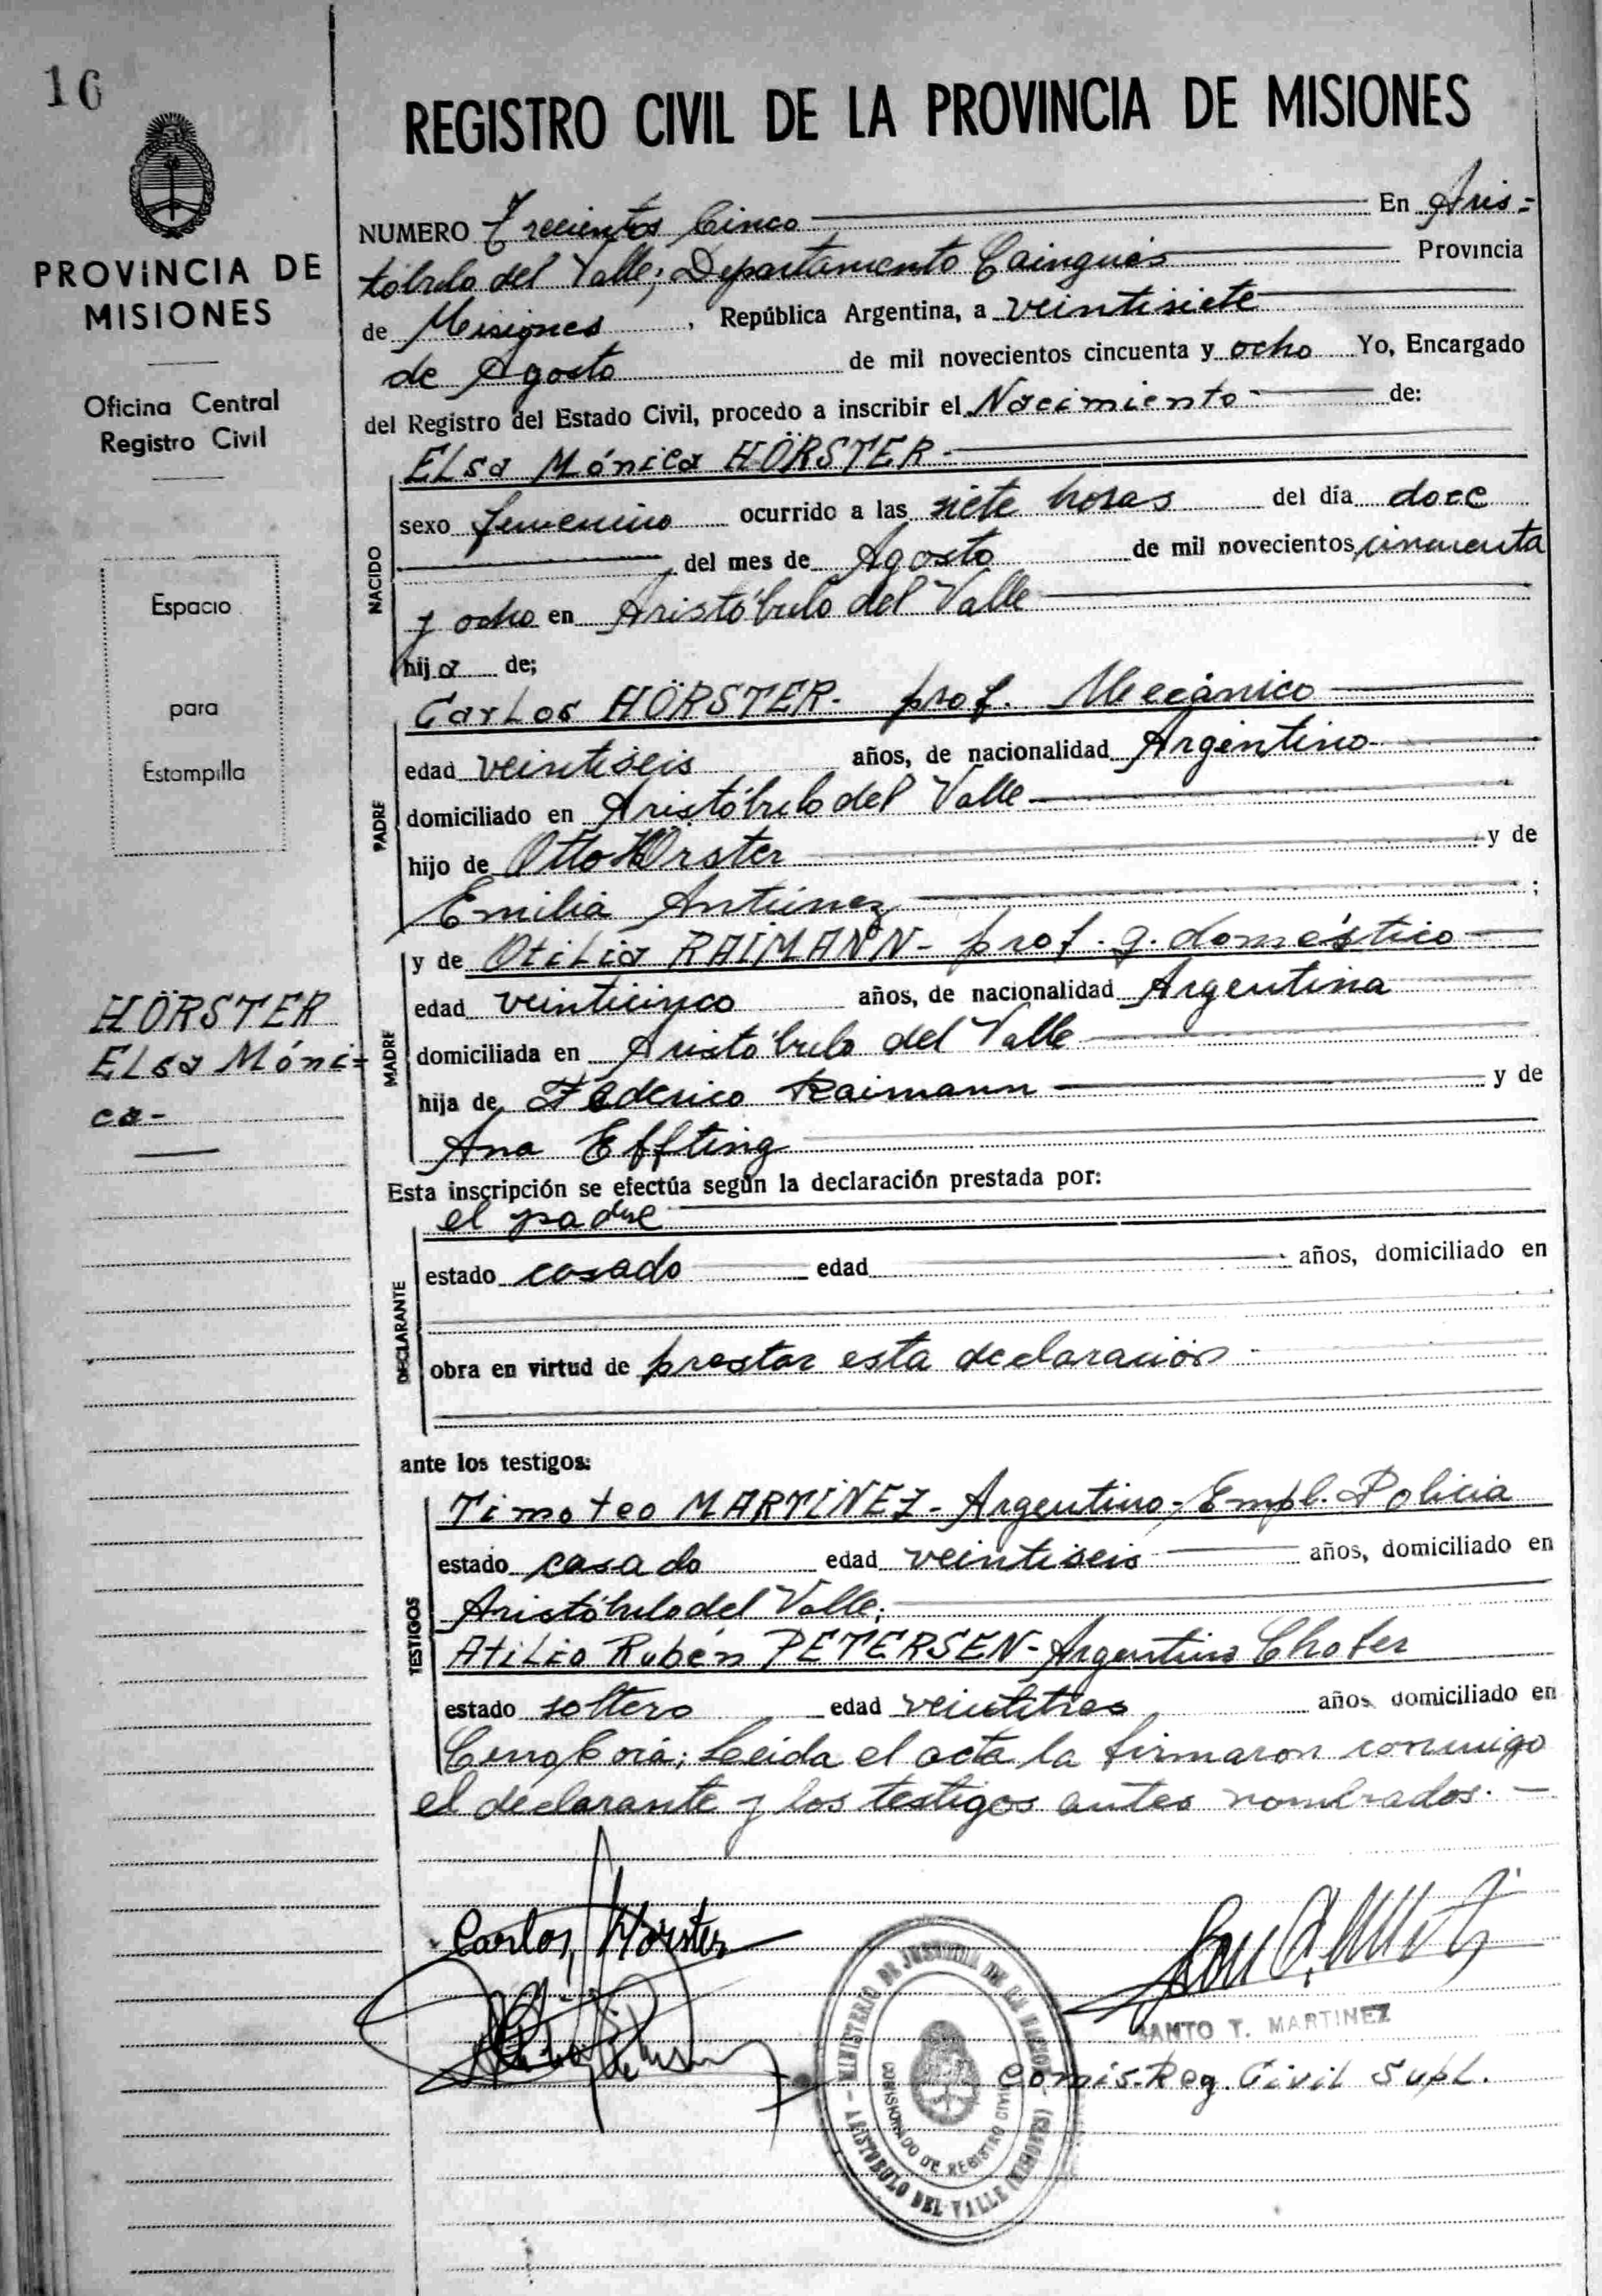 16
PROVINCIA DE
MISIONES
Oficina Central
Registro Civil
Espacio
para
Estampilla
HÖRSTER
Elsa Móni=
ca-
REGISTRO CIVIL DE LA PROVINCIA DE MISIONES
NUMERO Trecientos Cinco En Aris=
tóbulo del Valle; Departamento Cainguás Provincia
de Misiones, República Argentina, a veintisiete
de Agosto de mil novecientos cincuenta y ocho Yo, Encargado
del Registro del Estado Civil, procedo a inscribir el Nacimiento de:
NACIDO
Elsa Mónica HÖRSTER-
sexo femenino ocurrido a las siete horas del día doce
del mes de Agosto de mil novecientos cincuenta
y ocho en Aristóbulo del Valle
hija de;
PADRE
Carlos HÖRSTER- prof. Mecánico
edad veintiseis años, de nacionalidad Argentino
domiciliado en Aristóbulo del Valle
hijo de Otto Hörster y de
Emilia Antúnez ;
MADRE
y de Otilia RAIMANN- prof. q. doméstico
edad veinticinco años, de nacionalidad Argentina
domiciliada en Aristóbulo del Valle
hija de Federico Raimann y de
Ana Effting
Esta inscripción se efectúa según la declaración prestada por:
DECLARANTE
el padre
estado casado edad años, domiciliado en
obra en virtud de prestar esta declaración
ante los testigos:
TESTIGOS
Timoteo MARTÍNEZ- Argentino- Empl. Policia
estado casado edad veintiseis años, domiciliado en
Aristóbulo del Valle;
Atilio Rubén PETERSEN- Argentino Chofer
estado soltero edad veintitres años domiciliado en
Cerro Corá; Leida el acta la firmaron conmigo
el declarante y los testigos antes nombrados.-
Carlos Hörster
SANTO T. MARTINEZ
Comis. Reg. Civil Supl.
MINISTERIO DE JUSTICIA DE LA NACION
COMISIONADO DE REGISTRO CIVIL
ARISTOBULO DEL VALLE (MISIONES)